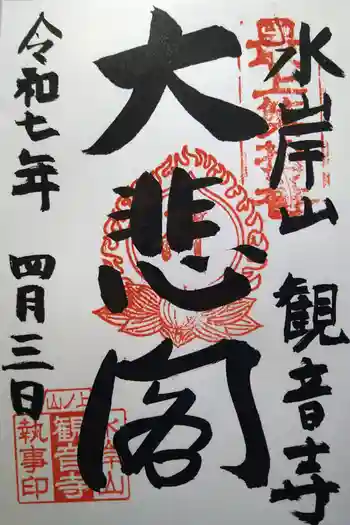 水岸山
観音寺
大悲閣
令和七年
四月三日
上ノ山
水岸山
観音寺
執事印